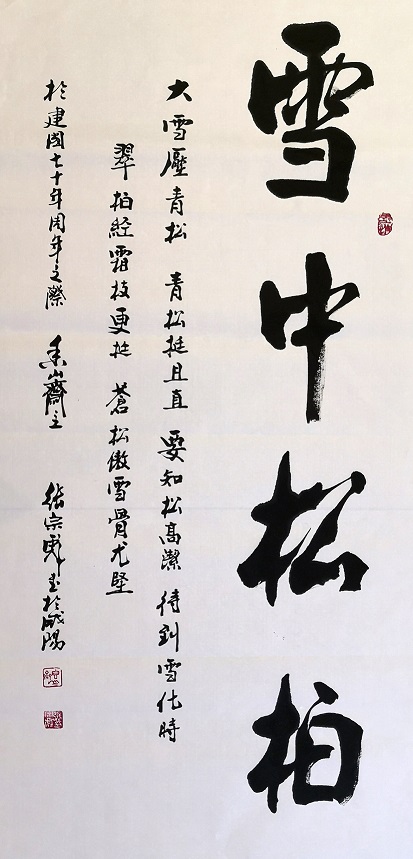 雪中松柏
大雪壓青松 青松挺且直 要知松高潔 待到雪化時
翠柏經霜枝更挺 蒼松傲雪骨尤堅
於建國七十年周年之際 香齋主 張宗 書於咸陽